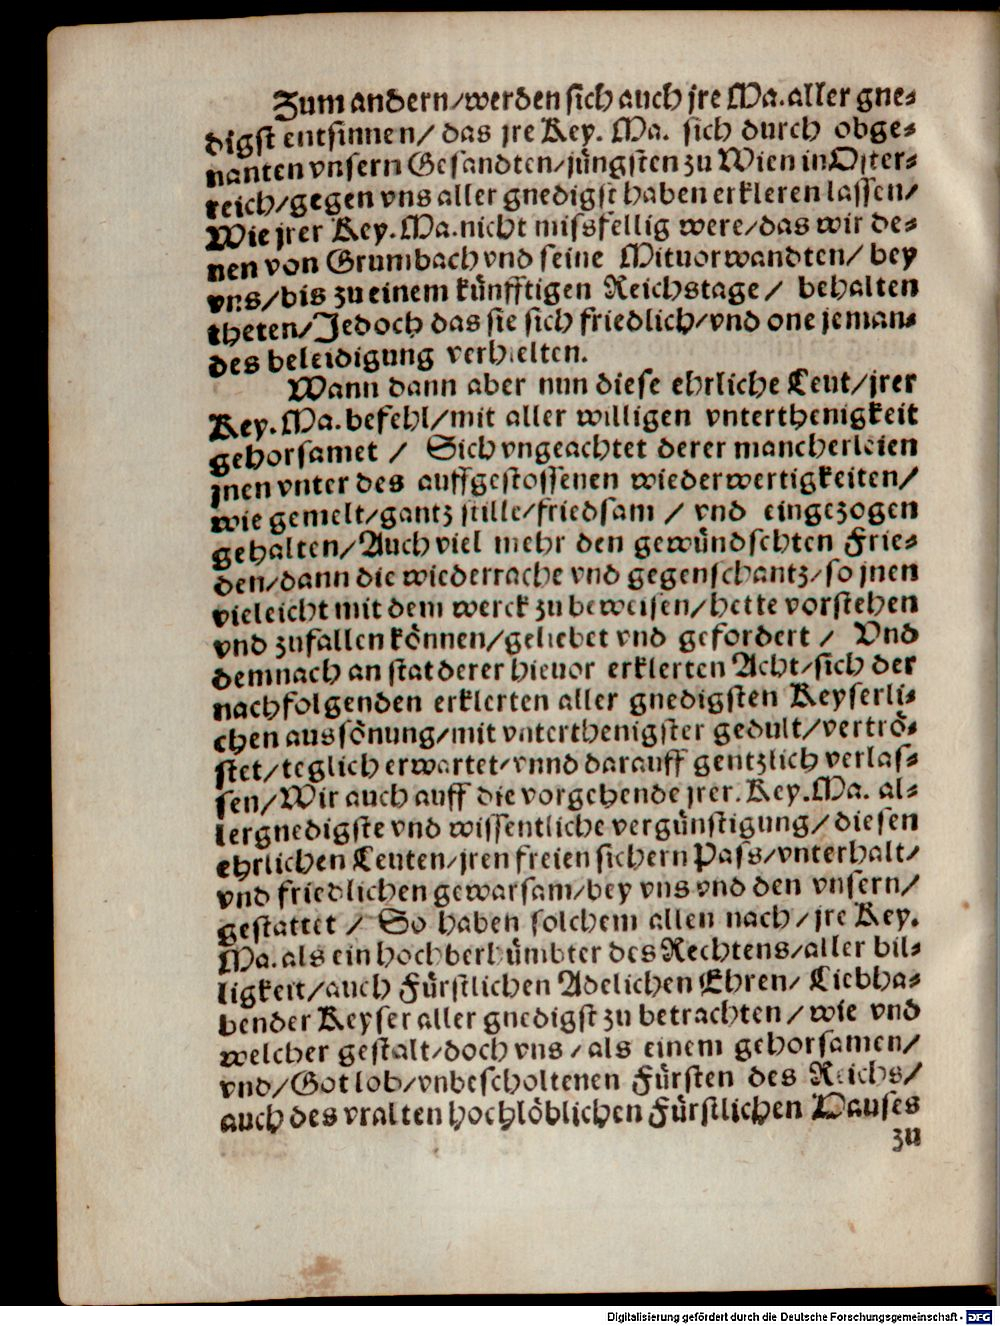 Zum andern/werden sich auch jre Ma.aller gne-
digst entsinnen/ das jre Key. Ma. sich durch obge-
nanten vnsern Gesandten/jüngsten zu Wien in Oster-
reich/gegen vns aller gnedigst haben erkleren lassen/
Wie jrer Key.Ma.nicht missfellig were/das wir de-
nen von Grumbach vnd seine Mituorwandten/ bey
vns/bis zu einem künfftigen Reichstage/ behalten
theten/Jedoch das sie sich friedlich/vnd one jeman-
des beleidigung verhielten.
Wann dann aber nun diese ehrliche Leut/jrer
Key.Ma.befehl/mit aller willigen vnterthenigkeit
gehorsamet / Sich vngeachtet derer mancherleien
jnen vnter des auffgestossenen wiederwertigkeiten/
wie gemelt/gantz stille/friedsam / vnd eingezogen
gehalten/Auch viel mehr den gewündschten Frie-
den/dann die wiederrache vnd gegenschantz/so jnen
vieleicht mit dem werck zu beweisen/hette vorstehen
vnd zufallen können/geliebet vnd gefordert / Vnd
demnach an stat derer hieuor erklerten Acht/sich der
nachfolgenden erklerten aller gnedigsten Keyserli-
chen aussönung/mit vnterthenigster gedult/vertrö-
stet/teglich erwartet/vnnd darauff gentzlich verlas-
sen/Wir auch auff die vorgehende jrer.Key.Ma. al-
lergnedigste vnd wissentliche vergünstigung/diesen
ehrlichen Leuten/jren freien sichern Pass/vnterhalt/
vnd friedlichen gewarsam/bey vns vnd den vnsern/
gestattet / So haben solchem allen nach/jre Key.
Ma.als ein hochberhümbter des Rechtens/aller bil-
ligkeit/auch Fürstlichen Adelichen Ehren/ Liebha-
bender Keyser aller gnedigst zu betrachten/wie vnd
welcher gestalt/doch vns/als einem gehorsamen/
vnd/Got lob/vnbescholtenen Fürsten des Reichs/
auch des vralten hochlöblichen Fürstlichen Hauses
zu
Digitalisierung gefördert durch die Deutsche Forschungsgemeinschaft - DFG